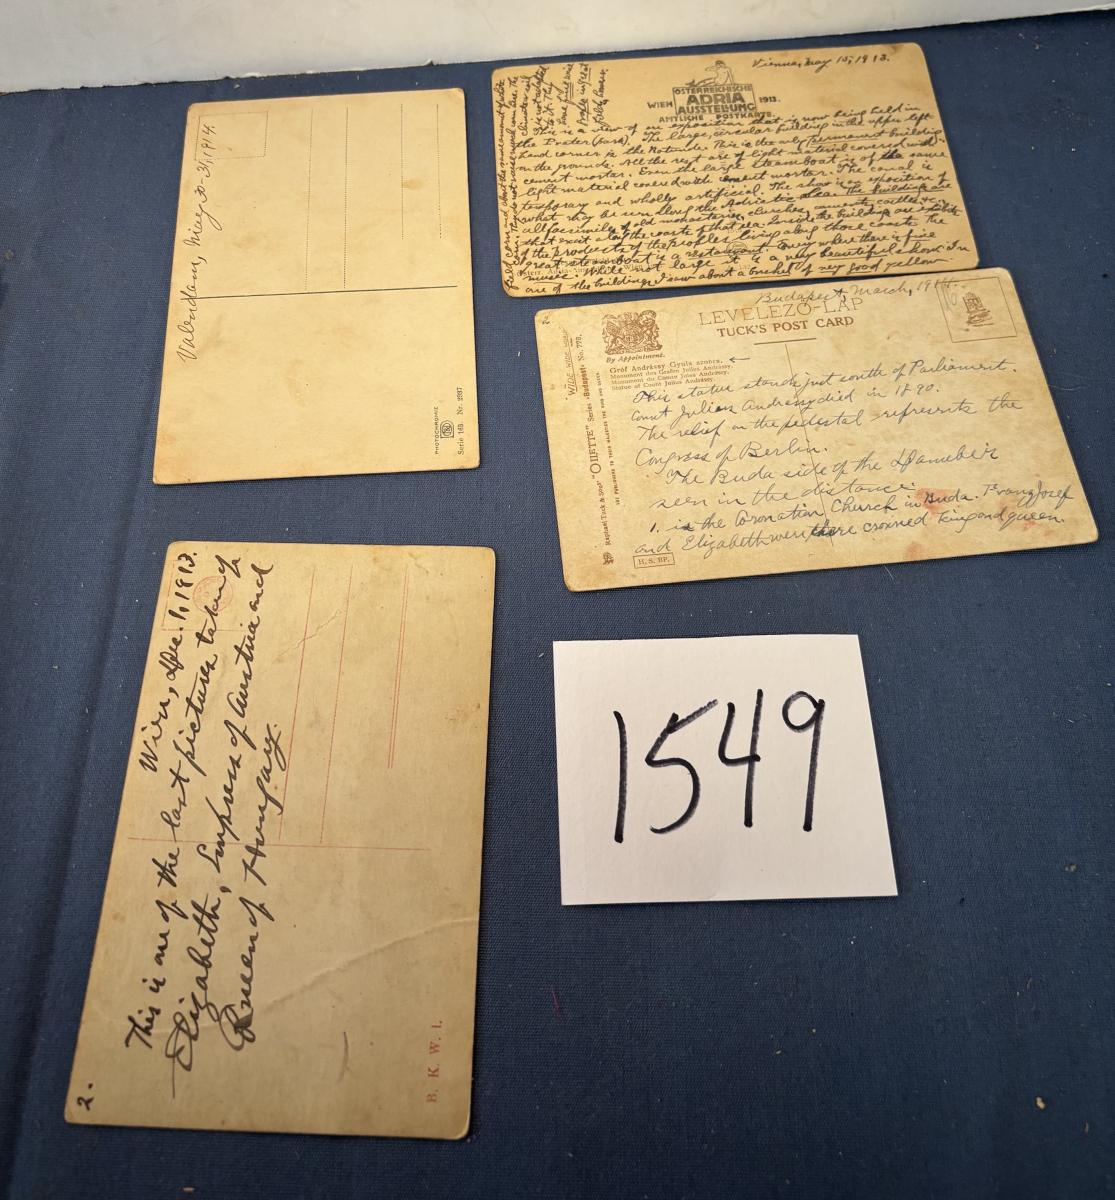 May 30-31, 1914.
PHOTOCHROMIE
Serie 163. Nr. 2937
Vienna, May 15, 1913.
ÖSTERREICHISCHE
ADRIA
AUSSTELLUNG
WIEN 1913.
AMTLICHE POSTKARTE.
This is a view of an exposition that is now being held in
the Prater (park). The large, circular building in the upper left
hand corner is the Rotunde. This is the only permanent building
on the grounds. All the rest are of light material covered with
cement mortar. Even the large steamboat is of the same
light material covered with cement mortar. The canal is
temporary and wholly artificial. The show is an exposition of
what may be seen along the Adriatic sea. The buildings are
all facsimiles of old monasteries, churches, castles, &c.
that exist along the coasts of that sea. Inside the buildings are exhibits
of the products of the peoples living along those coasts. The
great steamboat is a restaurant where there is fine
music. While not large it is a very beautiful show. In
one of the buildings I saw about a bushel of very good yellow
field corn
Budapest, March, 1914.
LEVELEZŐ-LAP
TUCK'S POST CARD
By Appointment.
Gróf Andrássy Gyula szobra.
Monument des Grafen Julius Andrássy.
Monument du Comte Jules Andrássy.
Statue of Count Julius Andrássy.
WIDE-WIDE-WORLD
Raphael Tuck & Sons' "OILETTE" Series "Budapest" No. 770.
This statue stands just south of Parliament.
Count Julian Andrassy died in 1890.
The relief on the pedestal represents the
Congress of Berlin.
The Buda side of the Danube is
seen in the distance.
1. is the Coronation Church in Buda. Franz Josef
and Elizabeth were there crowned king and queen.
H. S. BP.
Wien, Dec. 1, 1913.
This is one of the last pictures taken of
Elizabeth, Empress of Austria and
Queen of Hungary.
2.
B. K. W. I.
1549